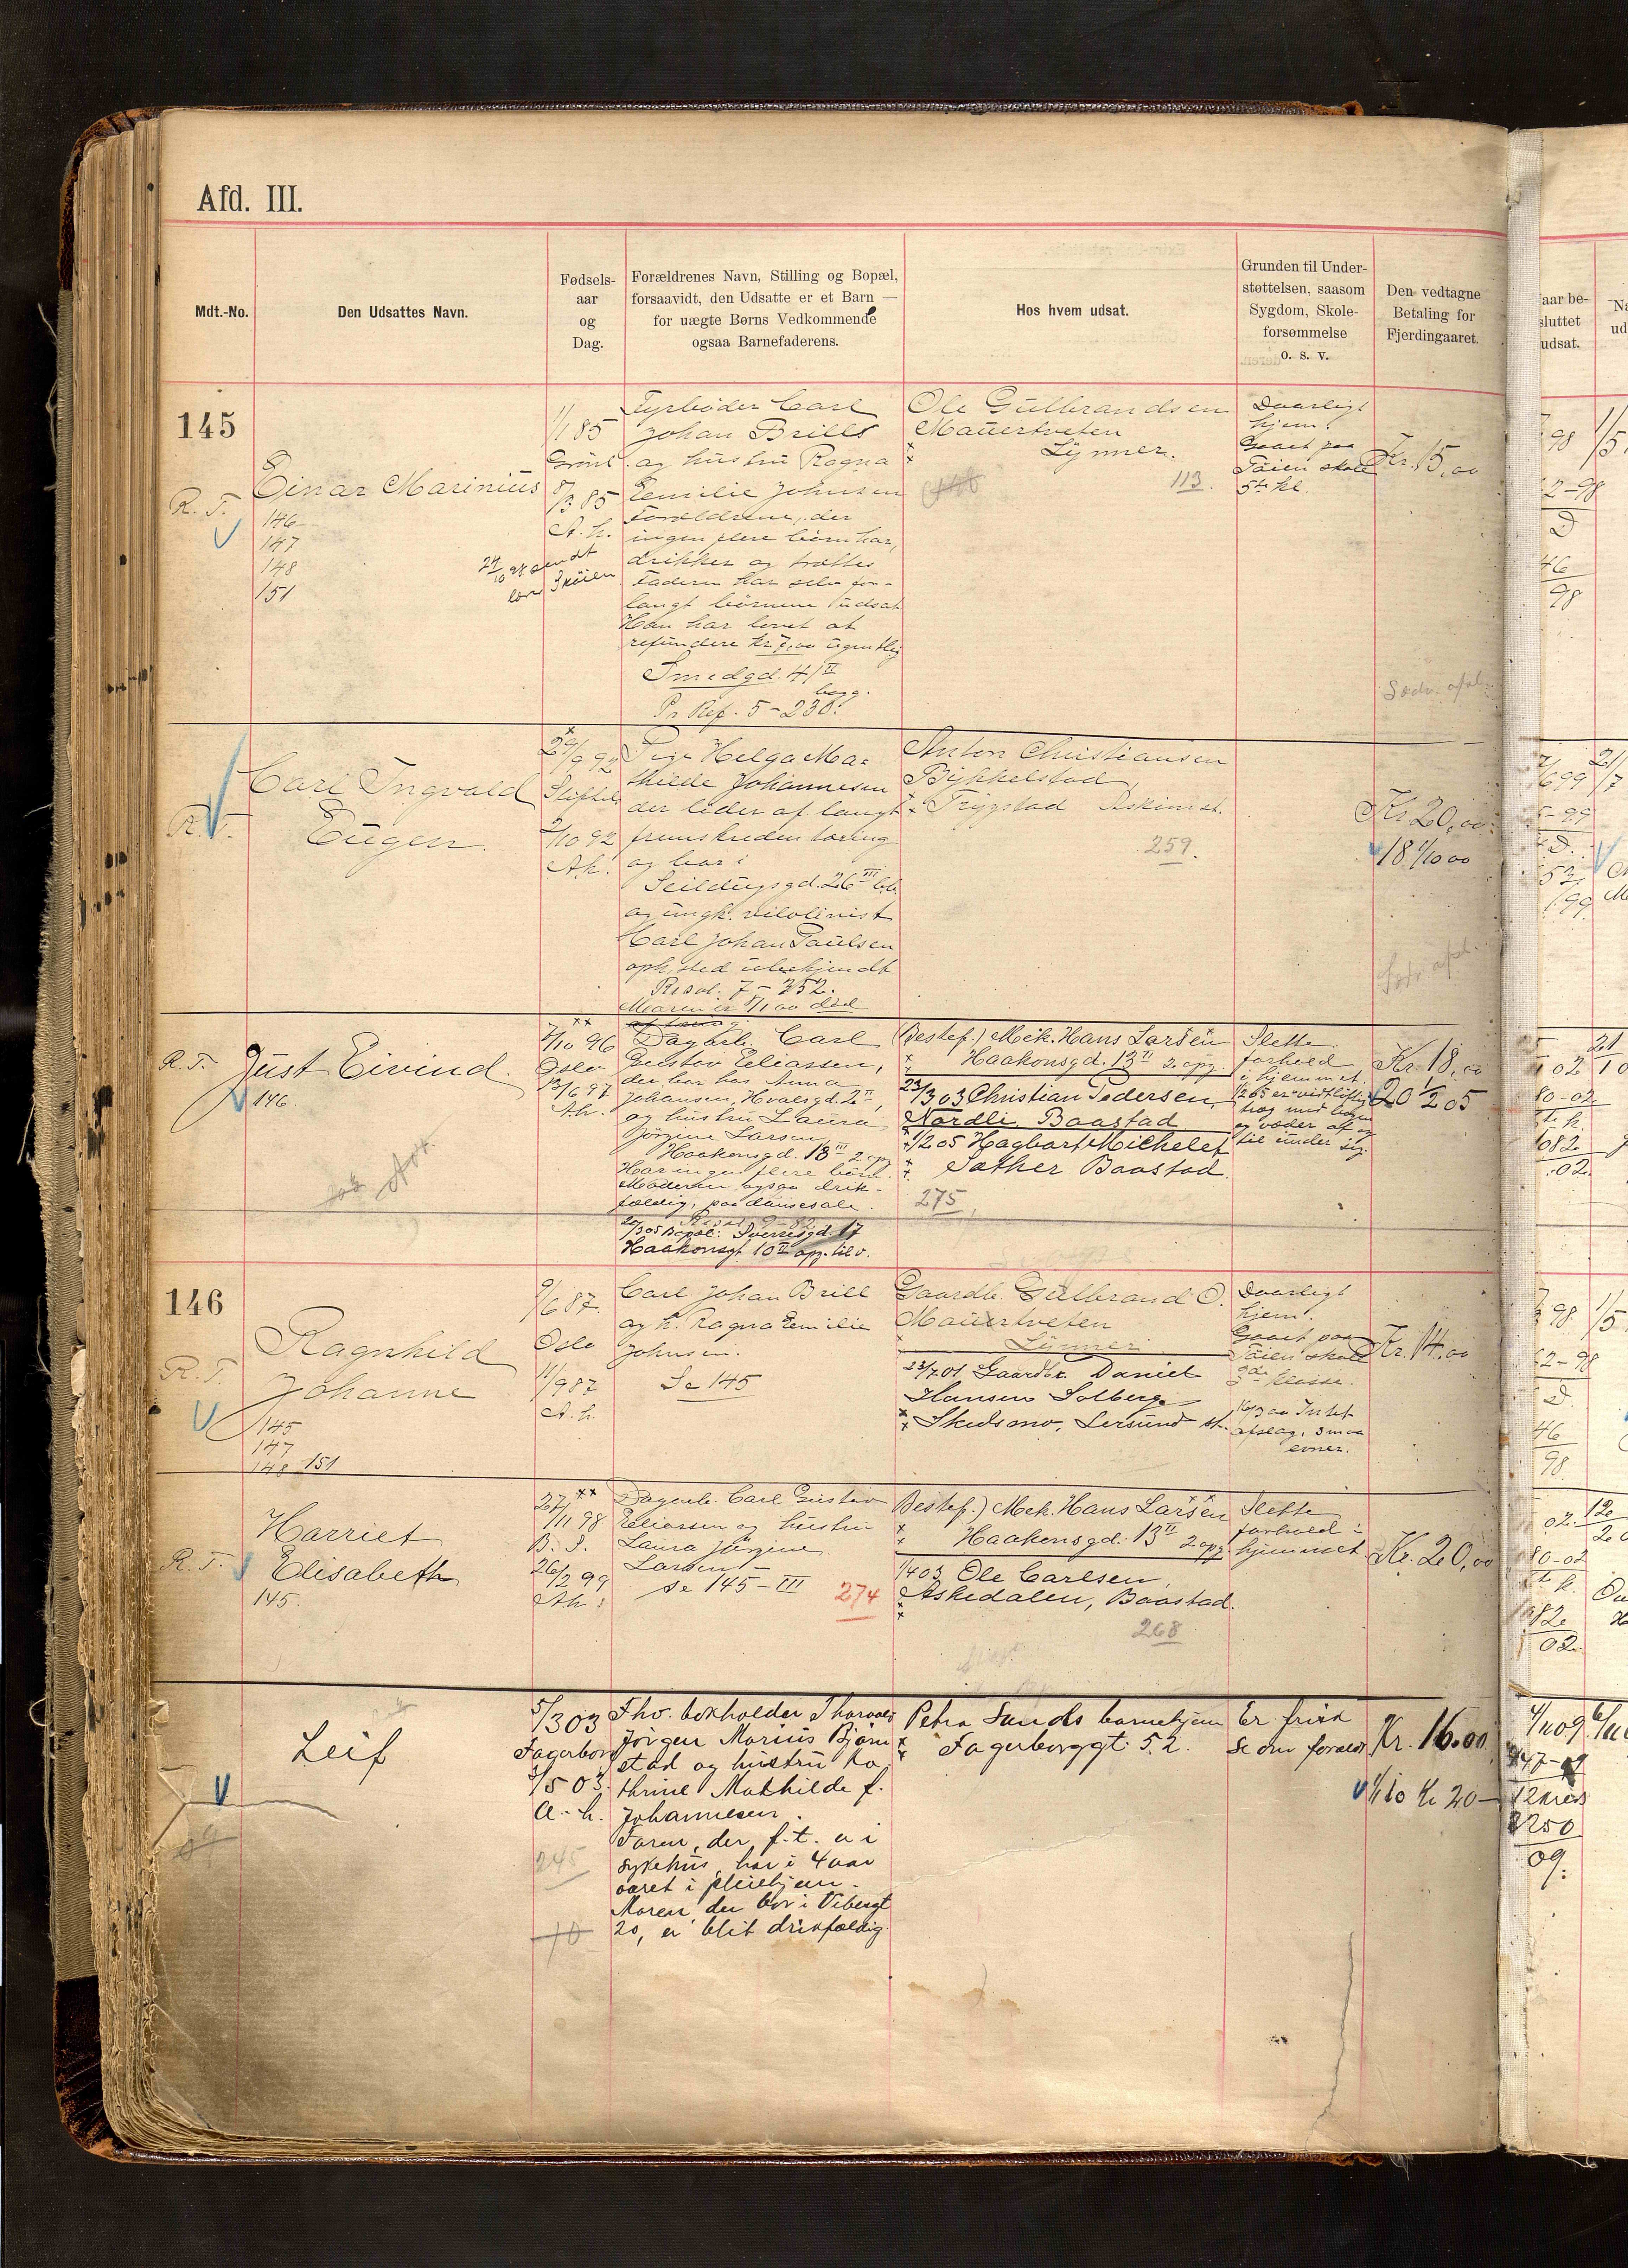 Afd. III.
Mdt.-No.
Den Udsattes Navn.
Fødsels-
aar
og
Dag.
Forældrenes Navn, Stilling og Bopæl,
forsaavidt, den Udsatte er et Barn —
for uægte Børns Vedkommende
ogsaa Barnefaderens.
Hos hvem udsat.
Grunden til Under-
støttelsen, saasom
Sygdom, Skole-
forsømmelse
o. s. v.
Den vedtagne
Betaling for
Fjerdingaaret.
aar be-
sluttet
udsat.
145
R. F.
Einar Marinius
146
147
148
151
1/1 85
Grønl.
8/3 85
A. h.
Fyrbøder Carl
Johan Brills
og hustru Ragna
Emilie Johnsen
Forældrene, der
ingen flere børn har,
drikker og trættes
Faderen har selv for-
langt børnene udsat
Han har lovet at
refundere kr. 7,00 ugentlig
Smedgd. 4/II
bagg.
Pr Ref. 5 - 230.
Ole Gulbrandsen
Mauertveten
Lynner.
113.
Daarligt
hjem.
Gaaet paa
Tøien skole
5te kl.
Kr. 15,00
R. F.
Carl Ingvald
Eugen.
29/9 92
Stiftels
2/10 92
A.h.
Pige Helga Ma-
thilde Johannesen
der lider af langt
fremskreden tæring
og bor i
Seildugsgd. 26 III
og ungk. violinist
Karl Johan Paulsen
oph. sted ubekjendt
Resol. 7 - 352.
Moren er 5/1 00 død
af tæring
Anton Christiansen
Bykkelstad,
Trygstad Askim st.
259.
Kr 20,00
18 1/10 00
R. F.
Just Eivind.
146.
7/10 96
Oslo
13/6 97
A.h.
Dagarb. Carl
Gustav Eliassen,
der bor hos Anna
Johansen, Hvalsgd. 2 II,
og hustru Laura
Jørgine Larsen
Haakonsgd. 13 III 2 opg
Har ingen flere børn.
Moderen ogsaa drik-
fældig, paa dansesale.
Resol. 9 - 82
20/3 05 Bopæl: Sverresgd. 17
Haakonsgt. 10 II opg. til v.
Bestef.) Mek. Hans Larsen
Haakonsgd. 13 II 2 opg.
23/3 03 Christian Pedersen,
Nordli Baastad
1/2 05 Hagbart Michelet
Sæther Baastad.
275
Slette
forhold
i hjemmet.
Kr. 18,00
20 1/2 05
146
R. F.
Ragnhild
Johanne
145
147
148 151
9/6 87.
Oslo
11/9 87
A. h.
Carl Johan Brill
og h. Ragna Emilie
Johnsen.
Se 145
Gaardb. Gulbrand O.
Mauertveten
Lynner
23/7 01 Gaardbr. Daniel
Hansen Solberg
Skedsmo, Lersund st.
Daarligt
hjem.
Gaaet paa
Tøien skole
3de klasse.
16/3 00 Intet
afslag, smaa
evner.
Kr. 14,00
R. F.
Harriet
Elisabeth
145.
27/11 98
B. S.
26/2 99
A.h.
Dagarb. Carl Gustav
Eliassen og hustru
Laura Jørgine
Larsen
se 145 - III
274
Bestef.) Mek. Hans Larsen
Haakonsgd. 13 II 2 opg
1/4 03 Ole Carlsen,
Askedalen, Baastad.
268
Slette
forhold i
hjemmet
Kr. 20,00
Leif
5/3 03
Fagerborg
3/5 03.
A. h.
245
Fhv. boxholder Thorvald
Jørgen Marius Bjørn
stad og hustru Ka
thrine Mathilde f.
Johannesen.
Faren, der f. t. er i
sykehus, har i 4 aar
været i pleiehjem.
Moren der bor i Vibesgt
20, er blit drikfældig.
Petra Sands barnehjem
Fagerborggt. 52.
Er frisk
Se om foræld
Kr. 16.00
1/1 10 Kr 20 -